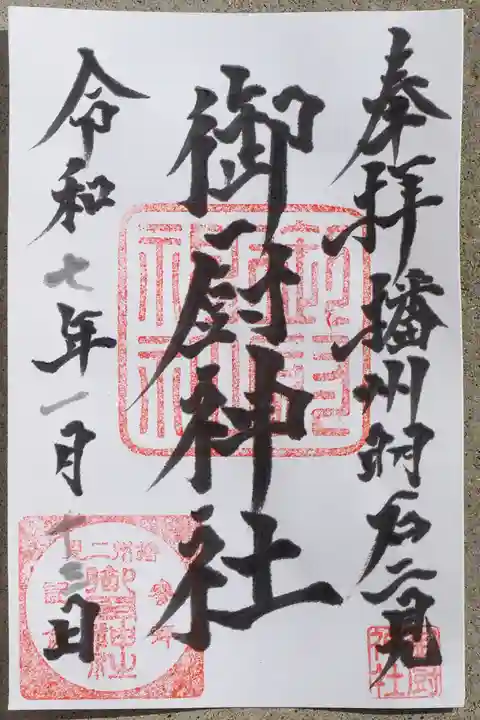 奉拝 播州明石二見
御厨神社
令和七年一月十三日